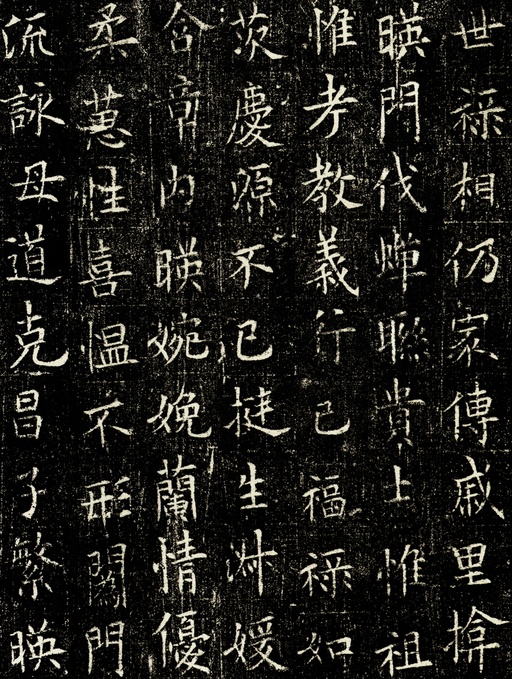 世祿相仍家傳戚里揜
暎門伐蟬聯貴士惟祖
惟考教義行己福祿如
茨慶源不已挺生淋媛
含章内暎婉娩蘭情優
柔蕙性喜愠不形門
流詠母道克昌子繁暎